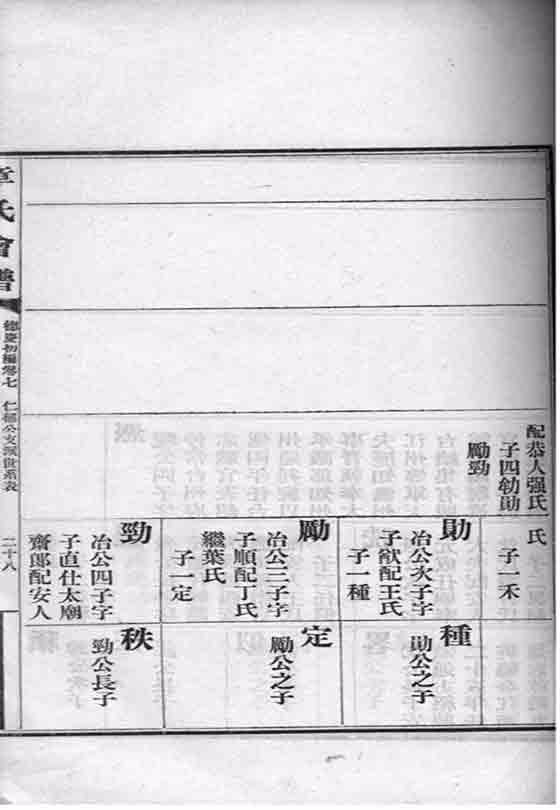 配恭人强氏
子四勃勛
勵勁
氏
子一禾
勛
冶公次子字
子猷配王氏
子一種
勵
冶公三子字
子順配丁氏
繼葉氏
子一定
勁
冶公四子字
子直仕太廟
齋郎配安人
種
勛公之子
定
勵公之子
秩
勁公長子
章氏會譜
德慶初編卷七
仁福公支派世系表
二十八